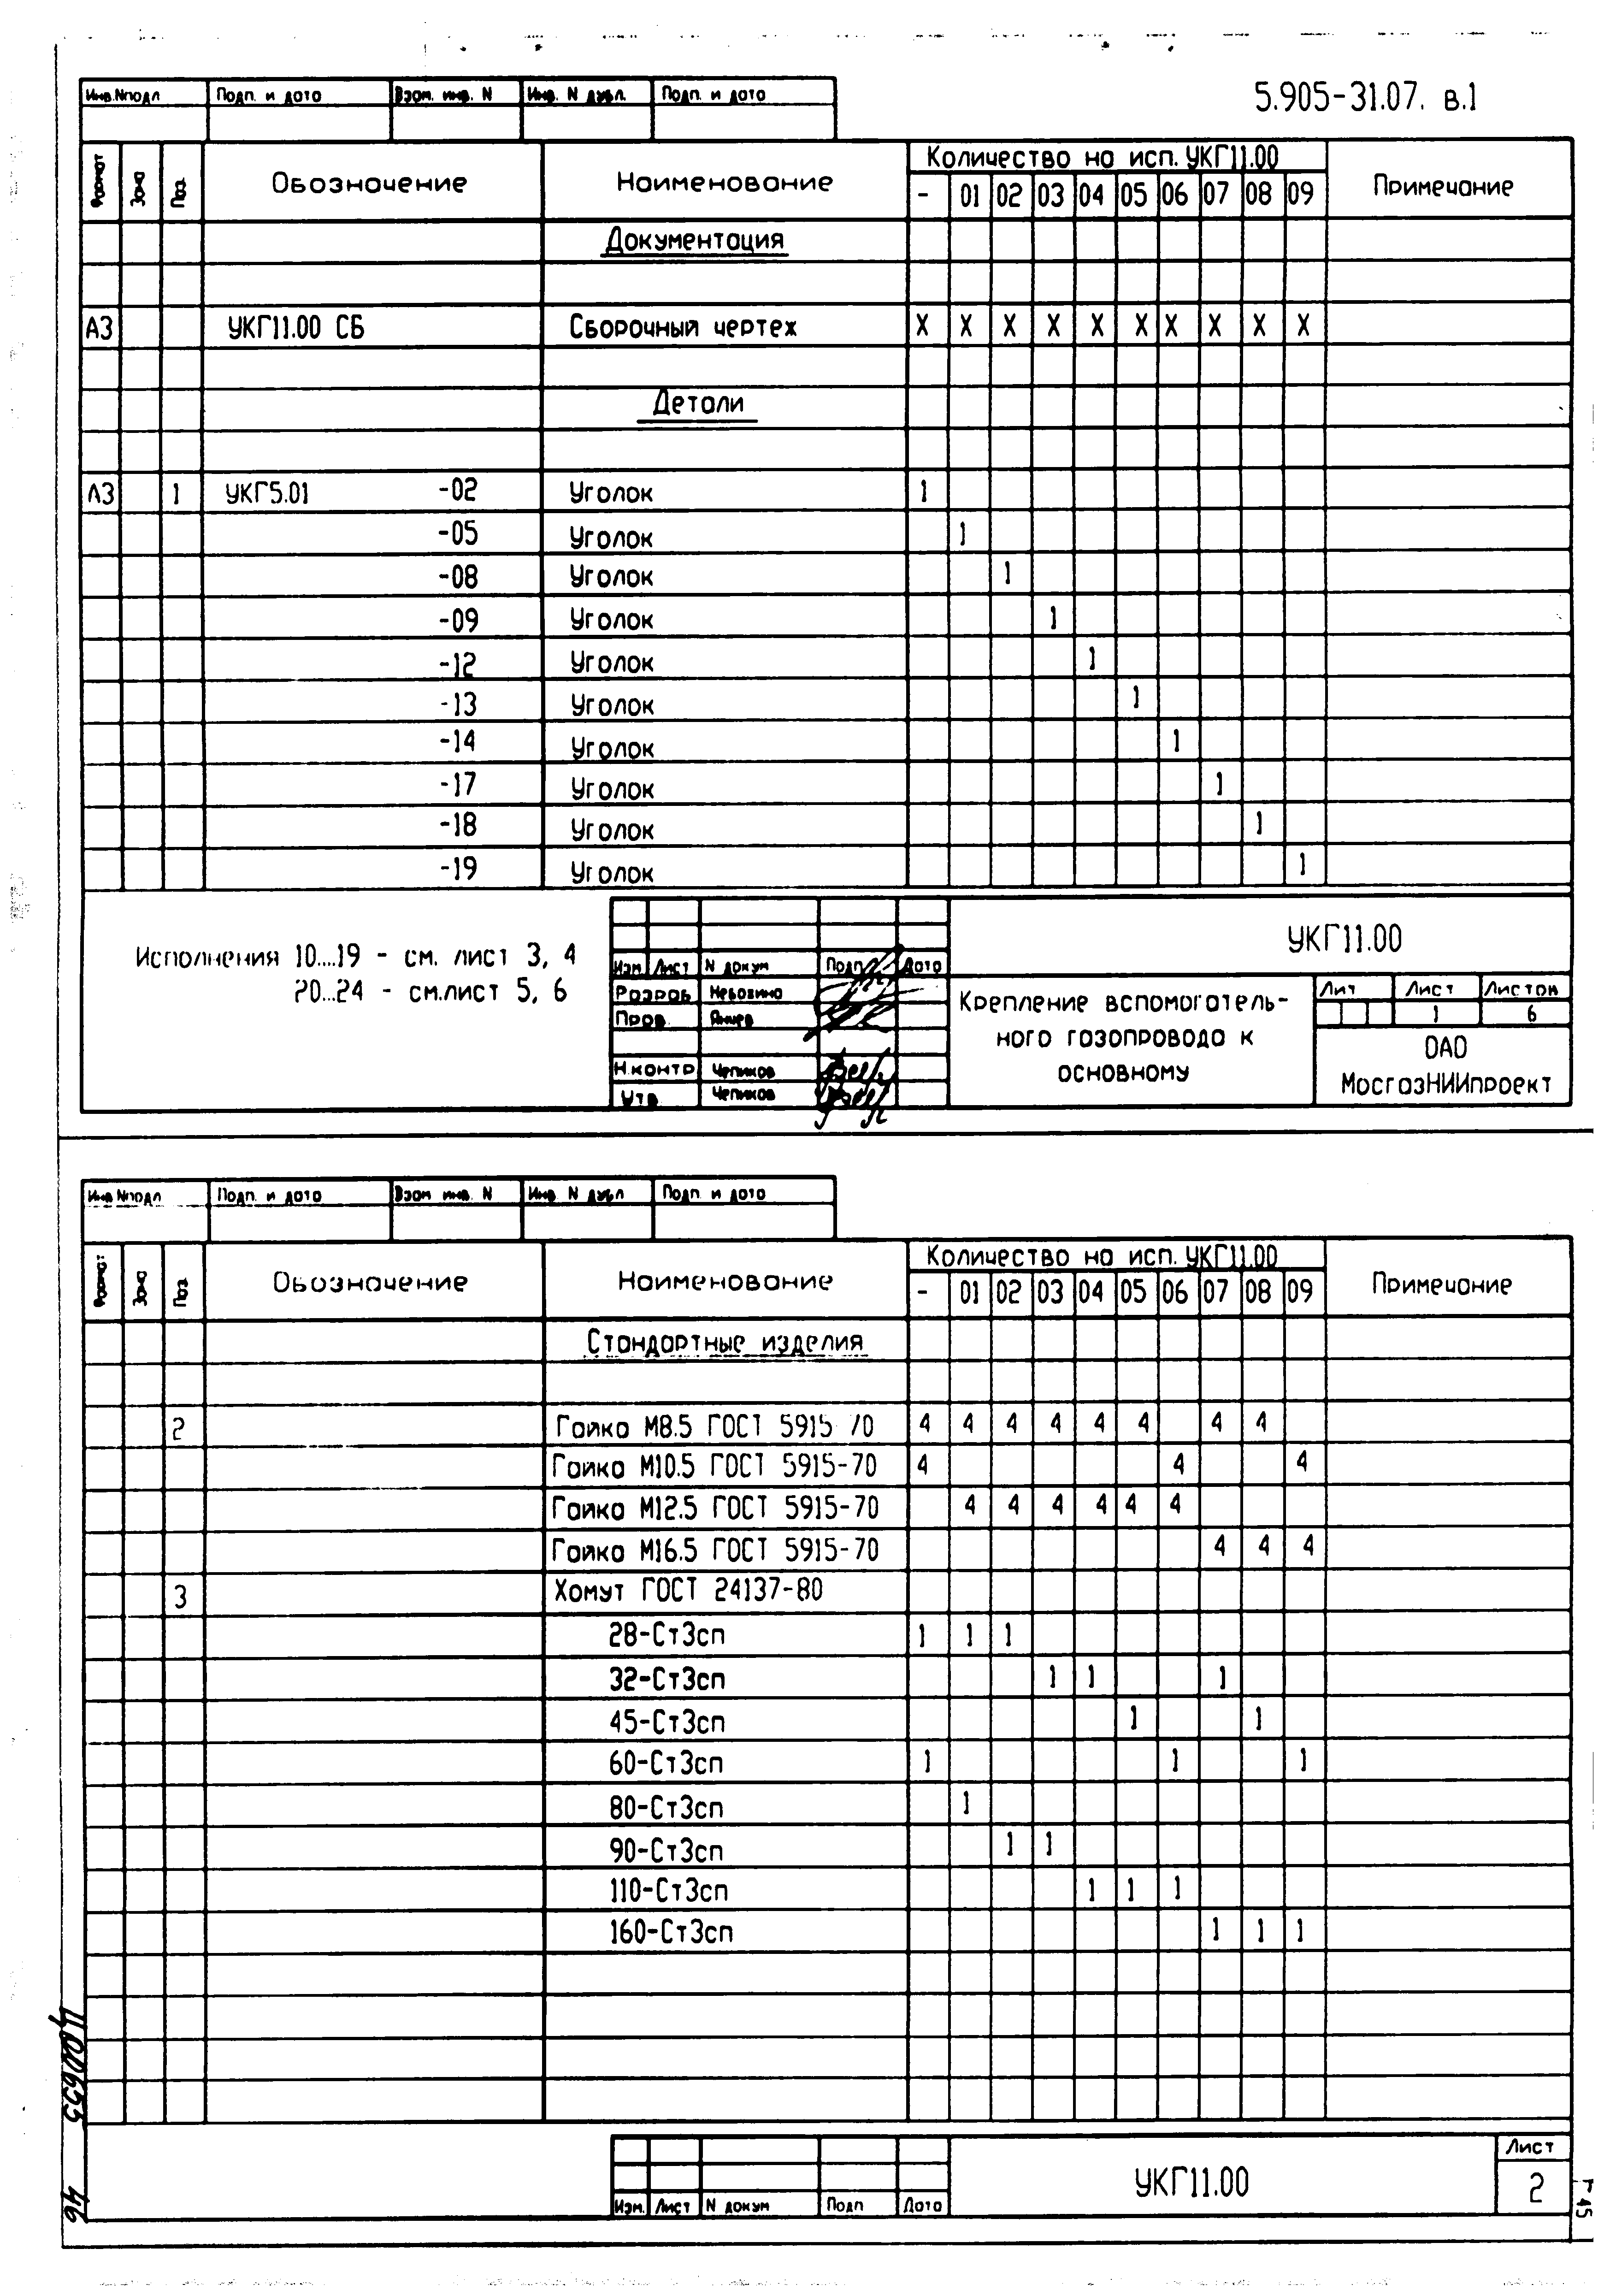 5.905-31.07. в.1
Инв.Nподл Подп. и дата Взам. инв. N Инв. N дубл. Подп. и дата
Формат Зона Поз. Обозначение Наименование Количество на исп. УКГ11.00 Примечание
- 01 02 03 04 05 06 07 08 09
Документация
А3 УКГ11.00 СБ Сборочный чертех X X X X X X X X X X
Детали
А3 1 УКГ5.01 -02 Уголок 1
-05 Уголок 1
-08 Уголок 1
-09 Уголок 1
-12 Уголок 1
-13 Уголок 1
-14 Уголок 1
-17 Уголок 1
-18 Уголок 1
-19 Уголок 1
Исполнения 10...19 - см. лист 3, 4
20...24 - см.лист 5, 6
Изм. Лист N докум Подп. Дата
Разраб
Пров.
Н.контр Чепиков
Утв. Чепиков
УКГ11.00
Крепление вспомогатель-
ного газопровода к
основному
Лит Лист Листов
1 6
ОАО
МосгазНИИпроект
Инв.Nподл Подп. и дата Взам инв. N Инв N дубл Подп. и дата
Формат Зона Поз. Обозначение Наименование Количество на исп. УКГ11.00 Примечание
- 01 02 03 04 05 06 07 08 09
Стандартные изделия
2 Гайка М8.5 ГОСТ 5915-70 4 4 4 4 4 4 4 4
Гайка М10.5 ГОСТ 5915-70 4 4 4
Гайка М12.5 ГОСТ 5915-70 4 4 4 4 4 4
Гайка М16.5 ГОСТ 5915-70 4 4 4
3 Хомут ГОСТ 24137-80
28-Ст3сп 1 1 1
32-Ст3сп 1 1 1
45-Ст3сп 1 1
60-Ст3сп 1 1 1
80-Ст3сп 1
90-Ст3сп 1 1
110-Ст3сп 1 1 1
160-Ст3сп 1 1 1
Изм. Лист N докум Подп Дата
УКГ11.00
Лист
2
46